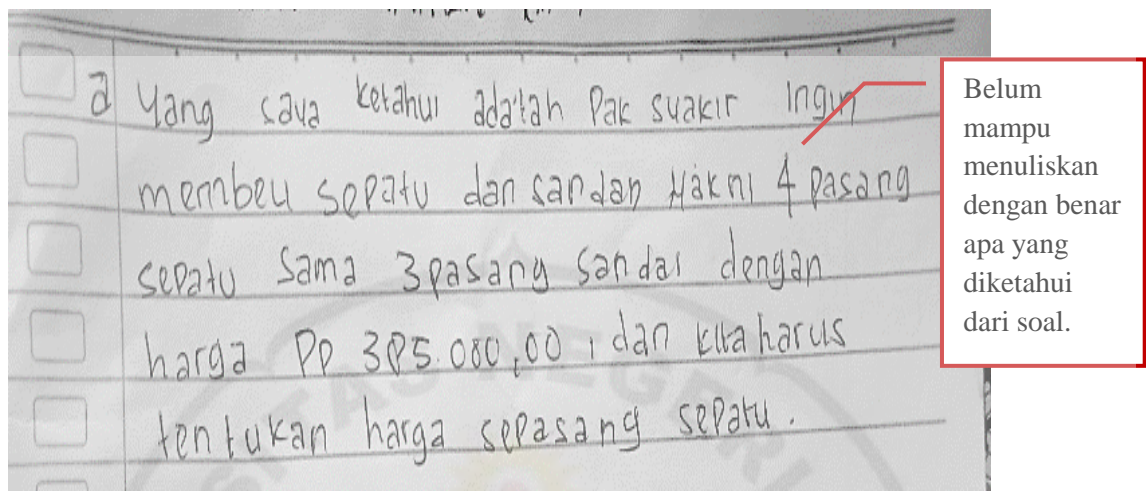 a Yang saya ketahui adalah Pak suakir ingin
membeli sepatu dan sandan Yakni 4 pasang
sepatu sama 3 pasang sandal dengan
harga Rp 385.000,00, dan kita harus
tentukan harga sepasang sepatu.
Belum
mampu
menuliskan
dengan benar
apa yang
diketahui
dari soal.